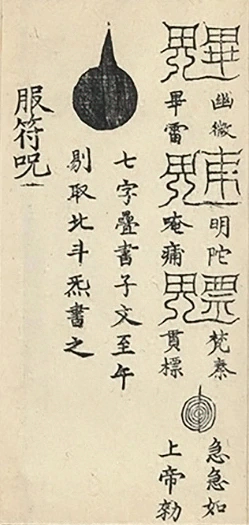 幽微
明陀
梵秦
急急如
畢雷
唵痡
貫標
上帝勅
七字疊書子文至午
剔取北斗炁書之
服符呪